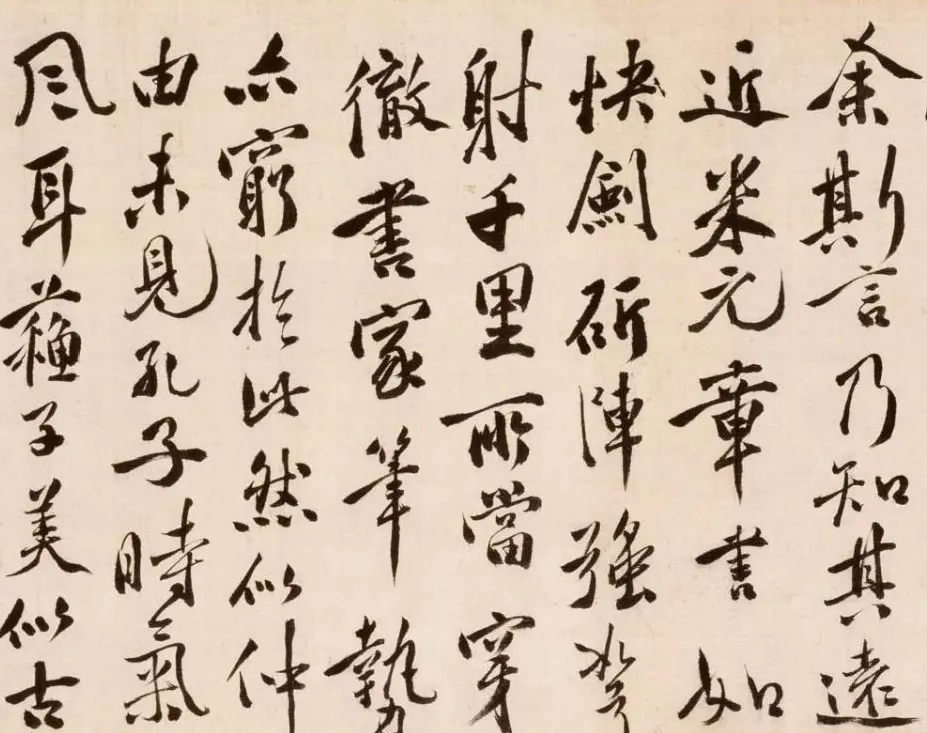 余斯言乃知其遠
近米元章書如
快劍斫陣強弩
射千里所當穿
徹書家筆勢
亦窮於此然似仲
由未見孔子時氣
風耳蘇子美似古